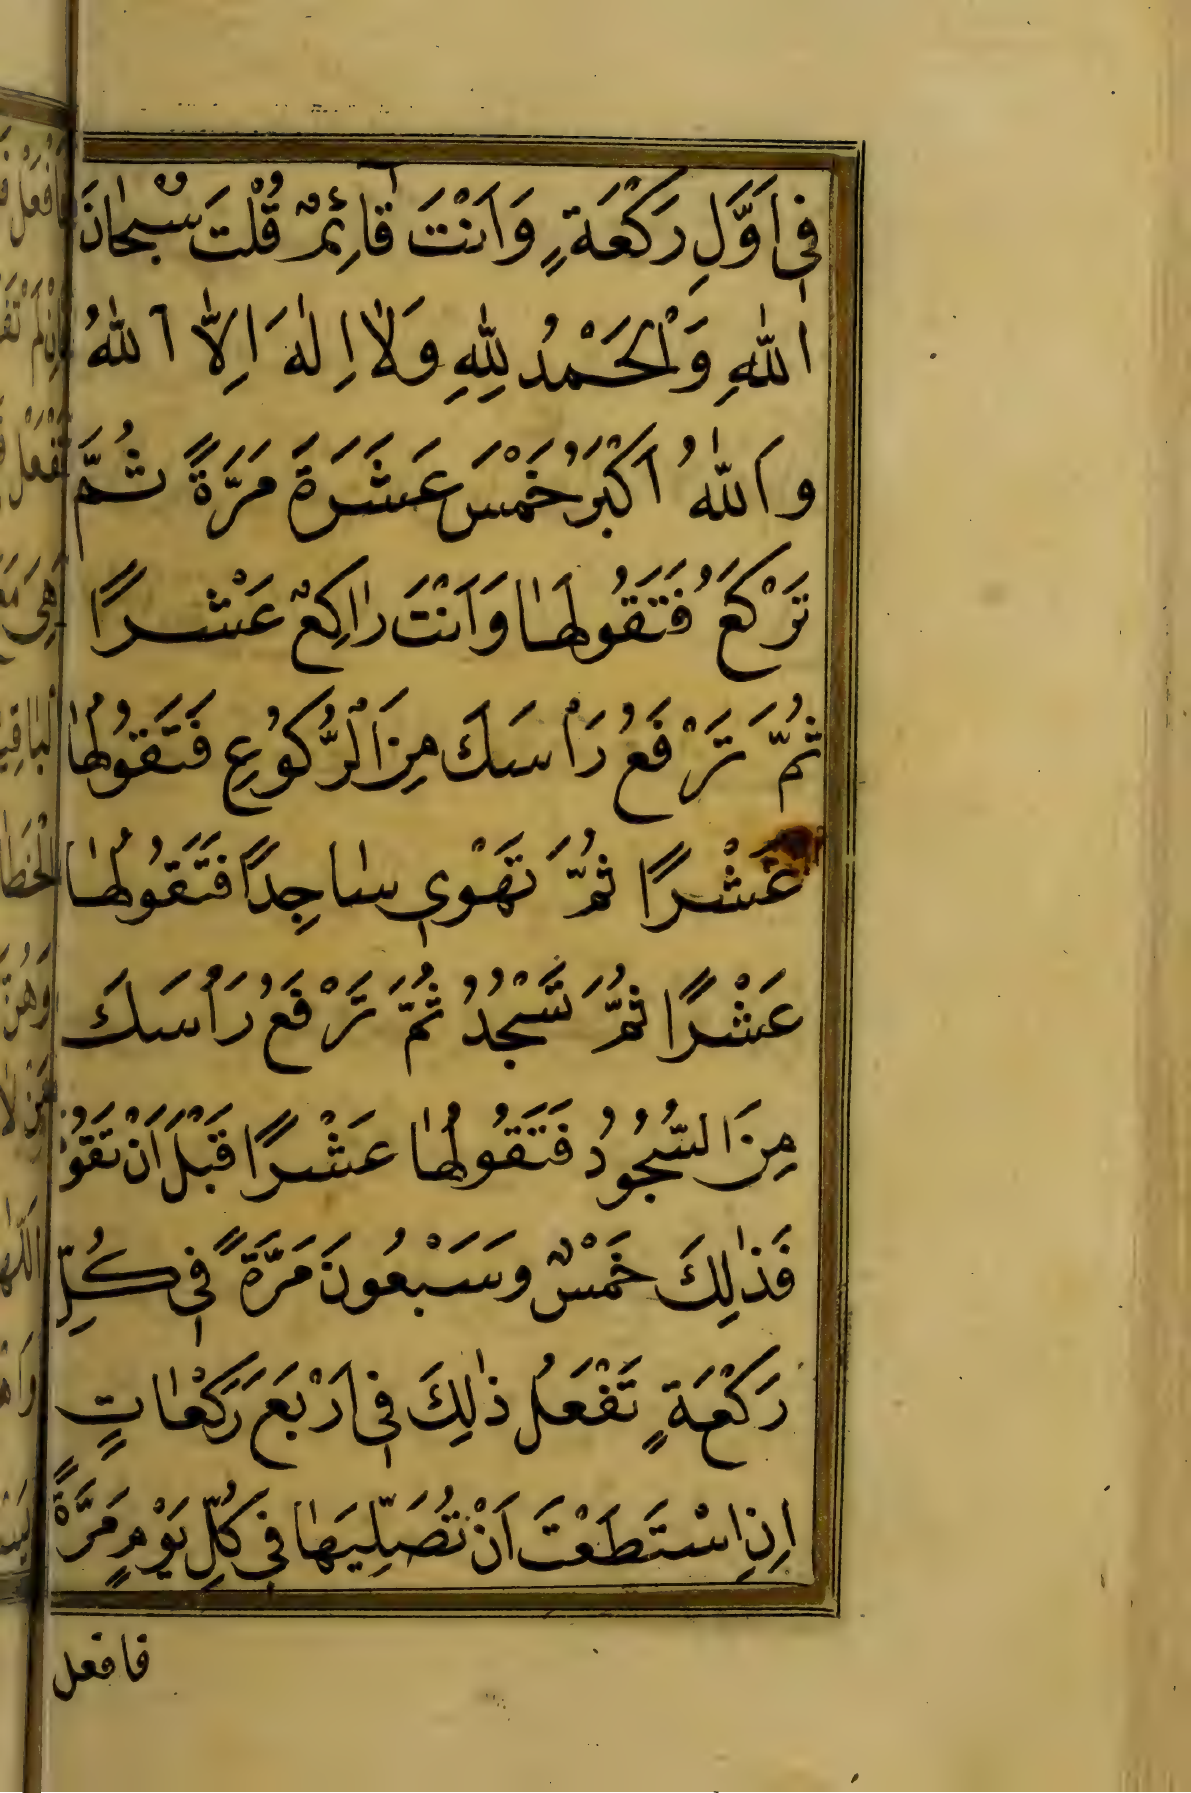 فِي اَوَّلِ رَكْعَةٍ وَاَنْتَ قَائِمٌ قُلْتَ سُبْحَانَ
اللّٰهِ وَالْحَمْدُ لِلّٰهِ وَلَا اِلٰهَ اِلَّا اللّٰهُ
وَاللّٰهُ اَكْبَرُ خَمْسَ عَشَرَةَ مَرَّةً ثُمَّ
تَرْكَعُ فَتَقُولُهَا وَاَنْتَ رَاكِعٌ عَشْرًا
ثُمَّ تَرْفَعُ رَاْسَكَ مِنَ الْرُّكُوُعِ فَتَقُولُهَا
عَشْرًا ثُمَّ تَهْوِي سَاجِدًا فَتَقُولُهَا
عَشْرًا ثُمَّ تَسْجُدُ ثُمَّ تَرْفَعُ رَاْسَكَ
مِنَ السُّجُودُ فَتَقُولُهَا عَشْرًا قَبْلَ اَنْ تَقُوْ
فَذٰلِكَ خَمْسٌ وسَبْعُونَ مَرَّةً فِي كُلِّ
رَكْعَةٍ تَفْعَلُ ذٰلِكَ فِي اَرْبَعَ رَكْعَاتٍ
اِنِ اسْتَطَعْتَ اَنْ تُصَلِّيَهَا فِي كُلِّ يَوْمٍ مَرَّةً
فافعل